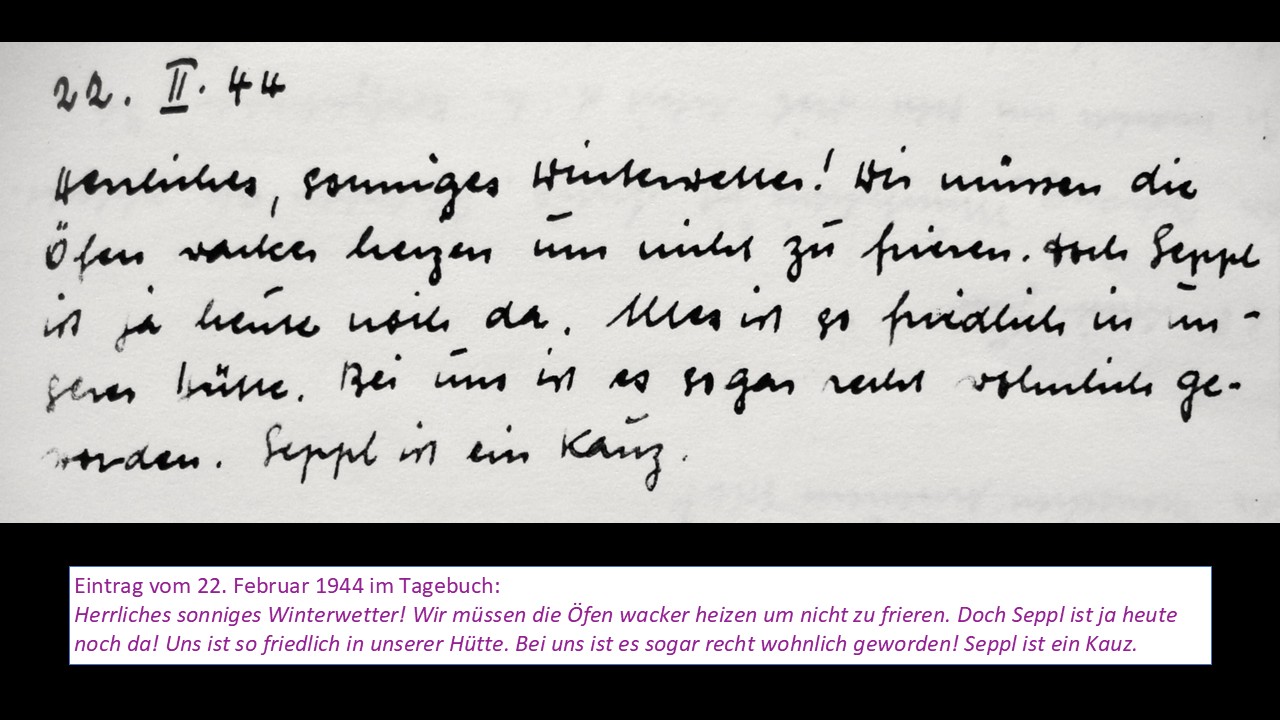 22. II. 44
Herrliches, sonniges Winterwetter! Wir müssen die
Öfen wacker heizen um nicht zu frieren. Doch Seppl
ist ja heute noch da. Alles ist so friedlich in un-
serer Hütte. Bei uns ist es sogar recht wohnlich ge-
worden. Seppl ist ein Kauz.
Eintrag vom 22. Februar 1944 im Tagebuch:
Herrliches sonniges Winterwetter! Wir müssen die Öfen wacker heizen um nicht zu frieren. Doch Seppl ist ja heute
noch da! Uns ist so friedlich in unserer Hütte. Bei uns ist es sogar recht wohnlich geworden! Seppl ist ein Kauz.